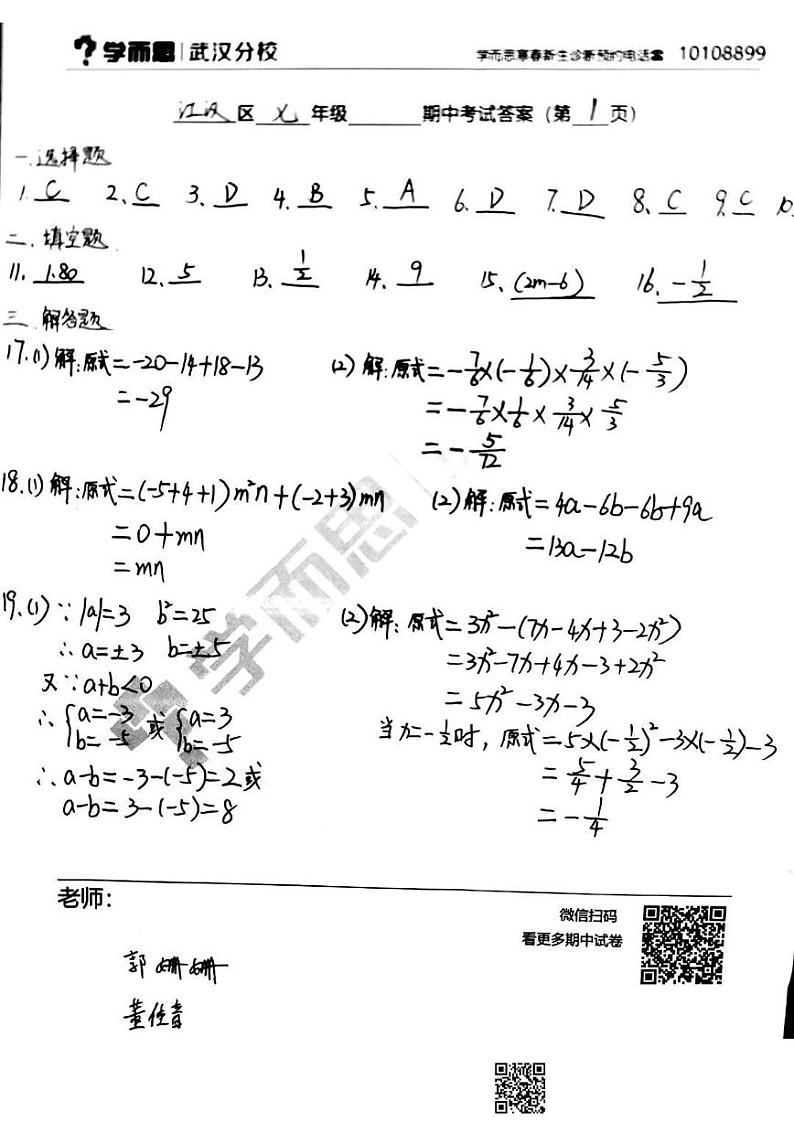 学而思 武汉分校 学而思寒春新生诊断预约电话☎ 10108899
江汉区 七 年级______期中考试答案(第 1 页)
一.选择题
1. C 2. C 3. D 4. B 5. A 6. D 7. D 8. C 9. C 10.
二.填空题
11. 1.80 12. 5 13. 1/2 14. 9 15. (2m-6) 16. -1/2
三.解答题
17.(1)解:原式=-20-14+18-13 (2)解:原式=-7/6×(-1/6)×3/14×(-5/3)
=-29 =-7/6×1/6×3/14×5/3
=-5/72
18.(1)解:原式=(-5+4+1)m²n+(-2+3)mn (2)解:原式=4a-6b-6b+9a
=0+mn =13a-12b
=mn
19.(1)∵|a|=3 b²=25 (2)解:原式=3x²-(7x-4x+3-2x²)
∴a=±3 b=±5 =3x²-7x+4x-3+2x²
又∵a+b<0 =5x²-3x-3
∴{a=-3 b=-5 或 {a=3 b=-5 当x=-1/2时,原式=5×(-1/2)²-3×(-1/2)-3
∴a-b=-3-(-5)=2或 =5/4+3/2-3
a-b=3-(-5)=8 =-1/4
学而思
老师:
微信扫码
看更多期中试卷
郭姗姗
董佳音